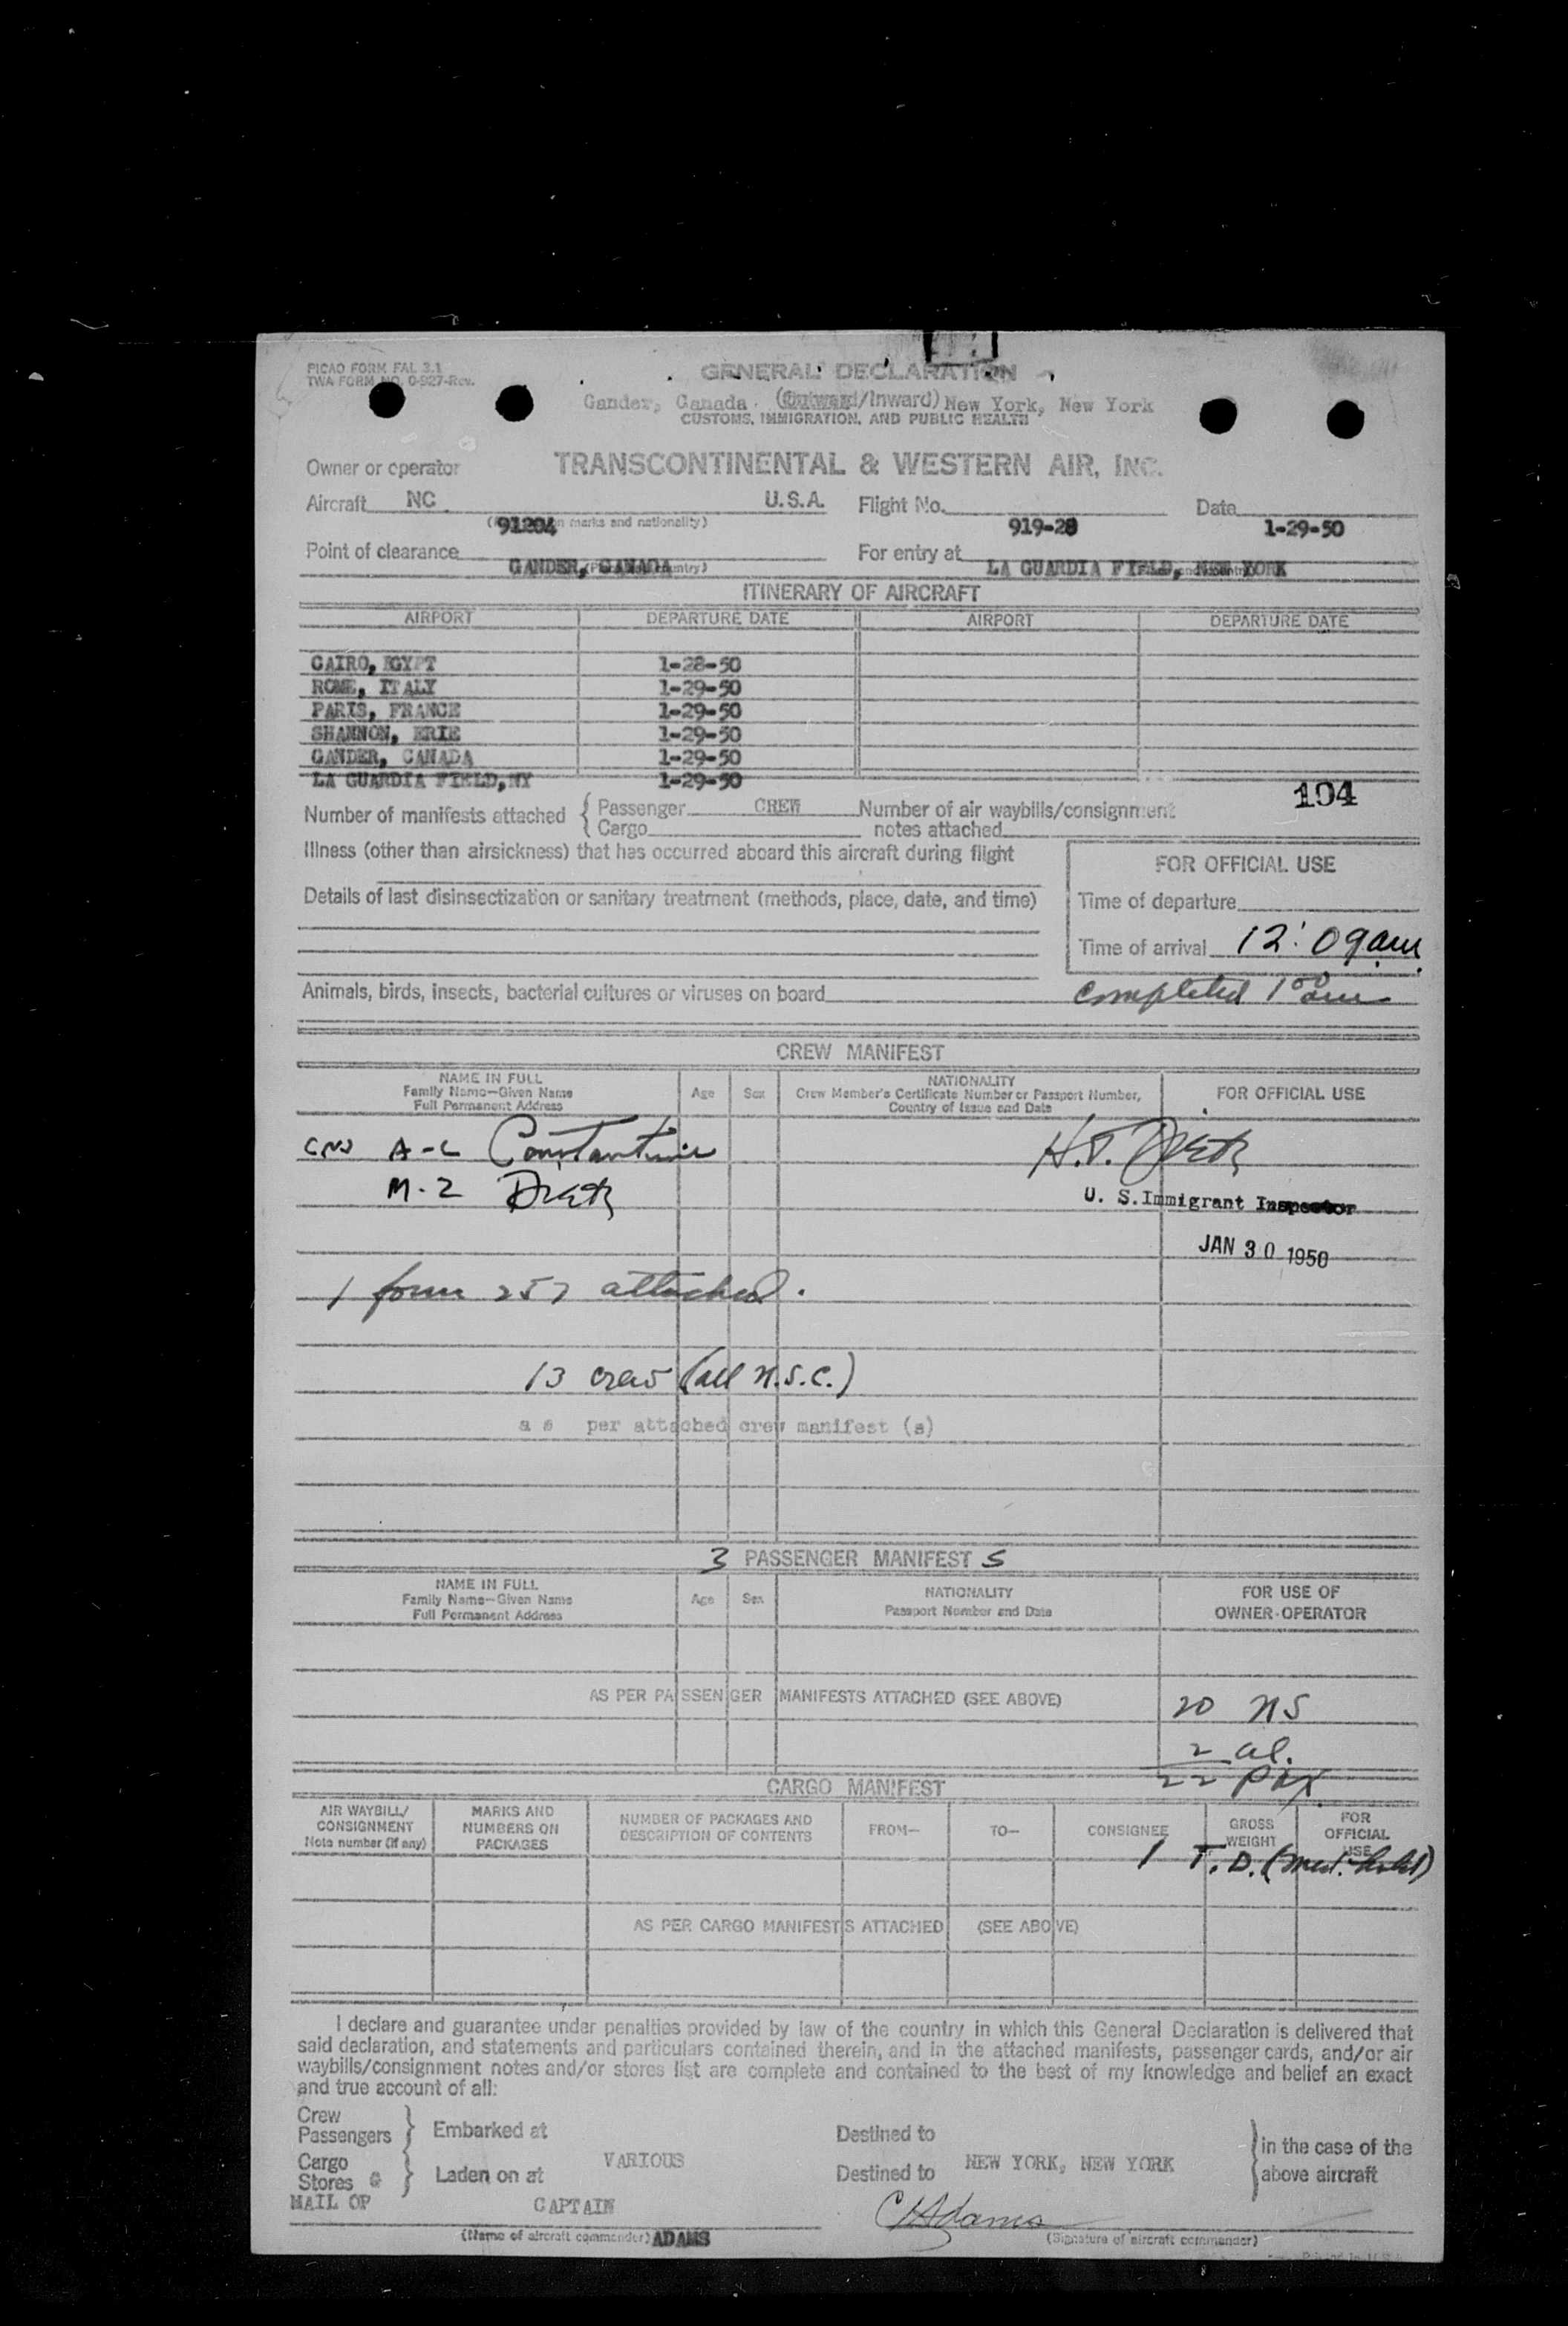 PICAO FORM FAL 3.1
TWA FORM NO. 0-927-Rev.
GENERAL DECLARATION
Gander, Canada (Outward/Inward) New York, New York
CUSTOMS, IMMIGRATION, AND PUBLIC HEALTH
Owner or operator TRANSCONTINENTAL & WESTERN AIR, INC.
Aircraft NC U.S.A. Flight No. Date
91204 marks and nationality) 919-28 1-29-50
Point of clearance For entry at
GANDER, CANADA LA GUARDIA FIELD, NEW YORK
ITINERARY OF AIRCRAFT
AIRPORT DEPARTURE DATE AIRPORT DEPARTURE DATE
CAIRO, EGYPT 1-28-50
ROME, ITALY 1-29-50
PARIS, FRANCE 1-29-50
SHANNON, ERIE 1-29-50
GANDER, CANADA 1-29-50
LA GUARDIA FIELD, NY 1-29-50
104
Number of manifests attached { Passenger CREW Number of air waybills/consignment
Cargo notes attached
Illness (other than airsickness) that has occurred aboard this aircraft during flight
FOR OFFICIAL USE
Details of last disinsectization or sanitary treatment (methods, place, date, and time)
Time of departure
Time of arrival 12:09am
Animals, birds, insects, bacterial cultures or viruses on board completed 1 00 am
CREW MANIFEST
NAME IN FULL
Family Name—Given Name
Full Permanent Address
Age Sex
NATIONALITY
Crew Member's Certificate Number or Passport Number,
Country of Issue and Date
FOR OFFICIAL USE
A-L Constantine
M-Z
H.T.
U. S. Immigrant Inspector
JAN 30 1950
1 form 257 attached.
13 crew (all U.S.C.)
as per attached crew manifest (s)
3 PASSENGER MANIFEST S
NAME IN FULL
Family Name—Given Name
Full Permanent Address
Age Sex
NATIONALITY
Passport Number and Date
FOR USE OF
OWNER-OPERATOR
AS PER PASSENGER MANIFESTS ATTACHED (SEE ABOVE)
20 US
2 al.
22 pax
CARGO MANIFEST
AIR WAYBILL/
CONSIGNMENT
Note number (if any)
MARKS AND
NUMBERS ON
PACKAGES
NUMBER OF PACKAGES AND
DESCRIPTION OF CONTENTS
FROM— TO— CONSIGNEE
GROSS
WEIGHT
FOR
OFFICIAL
USE
1 T.D. (med. hold)
AS PER CARGO MANIFESTS ATTACHED (SEE ABOVE)
I declare and guarantee under penalties provided by law of the country in which this General Declaration is delivered that
said declaration, and statements and particulars contained therein, and in the attached manifests, passenger cards, and/or air
waybills/consignment notes and/or stores list are complete and contained to the best of my knowledge and belief an exact
and true account of all:
Crew
Passengers } Embarked at Destined to
VARIOUS NEW YORK, NEW YORK
Cargo
Stores & } Laden on at Destined to
} in the case of the
above aircraft
MAIL OP CAPTAIN
CHAdams
(Name of aircraft commander) ADAMS (Signature of aircraft commander)